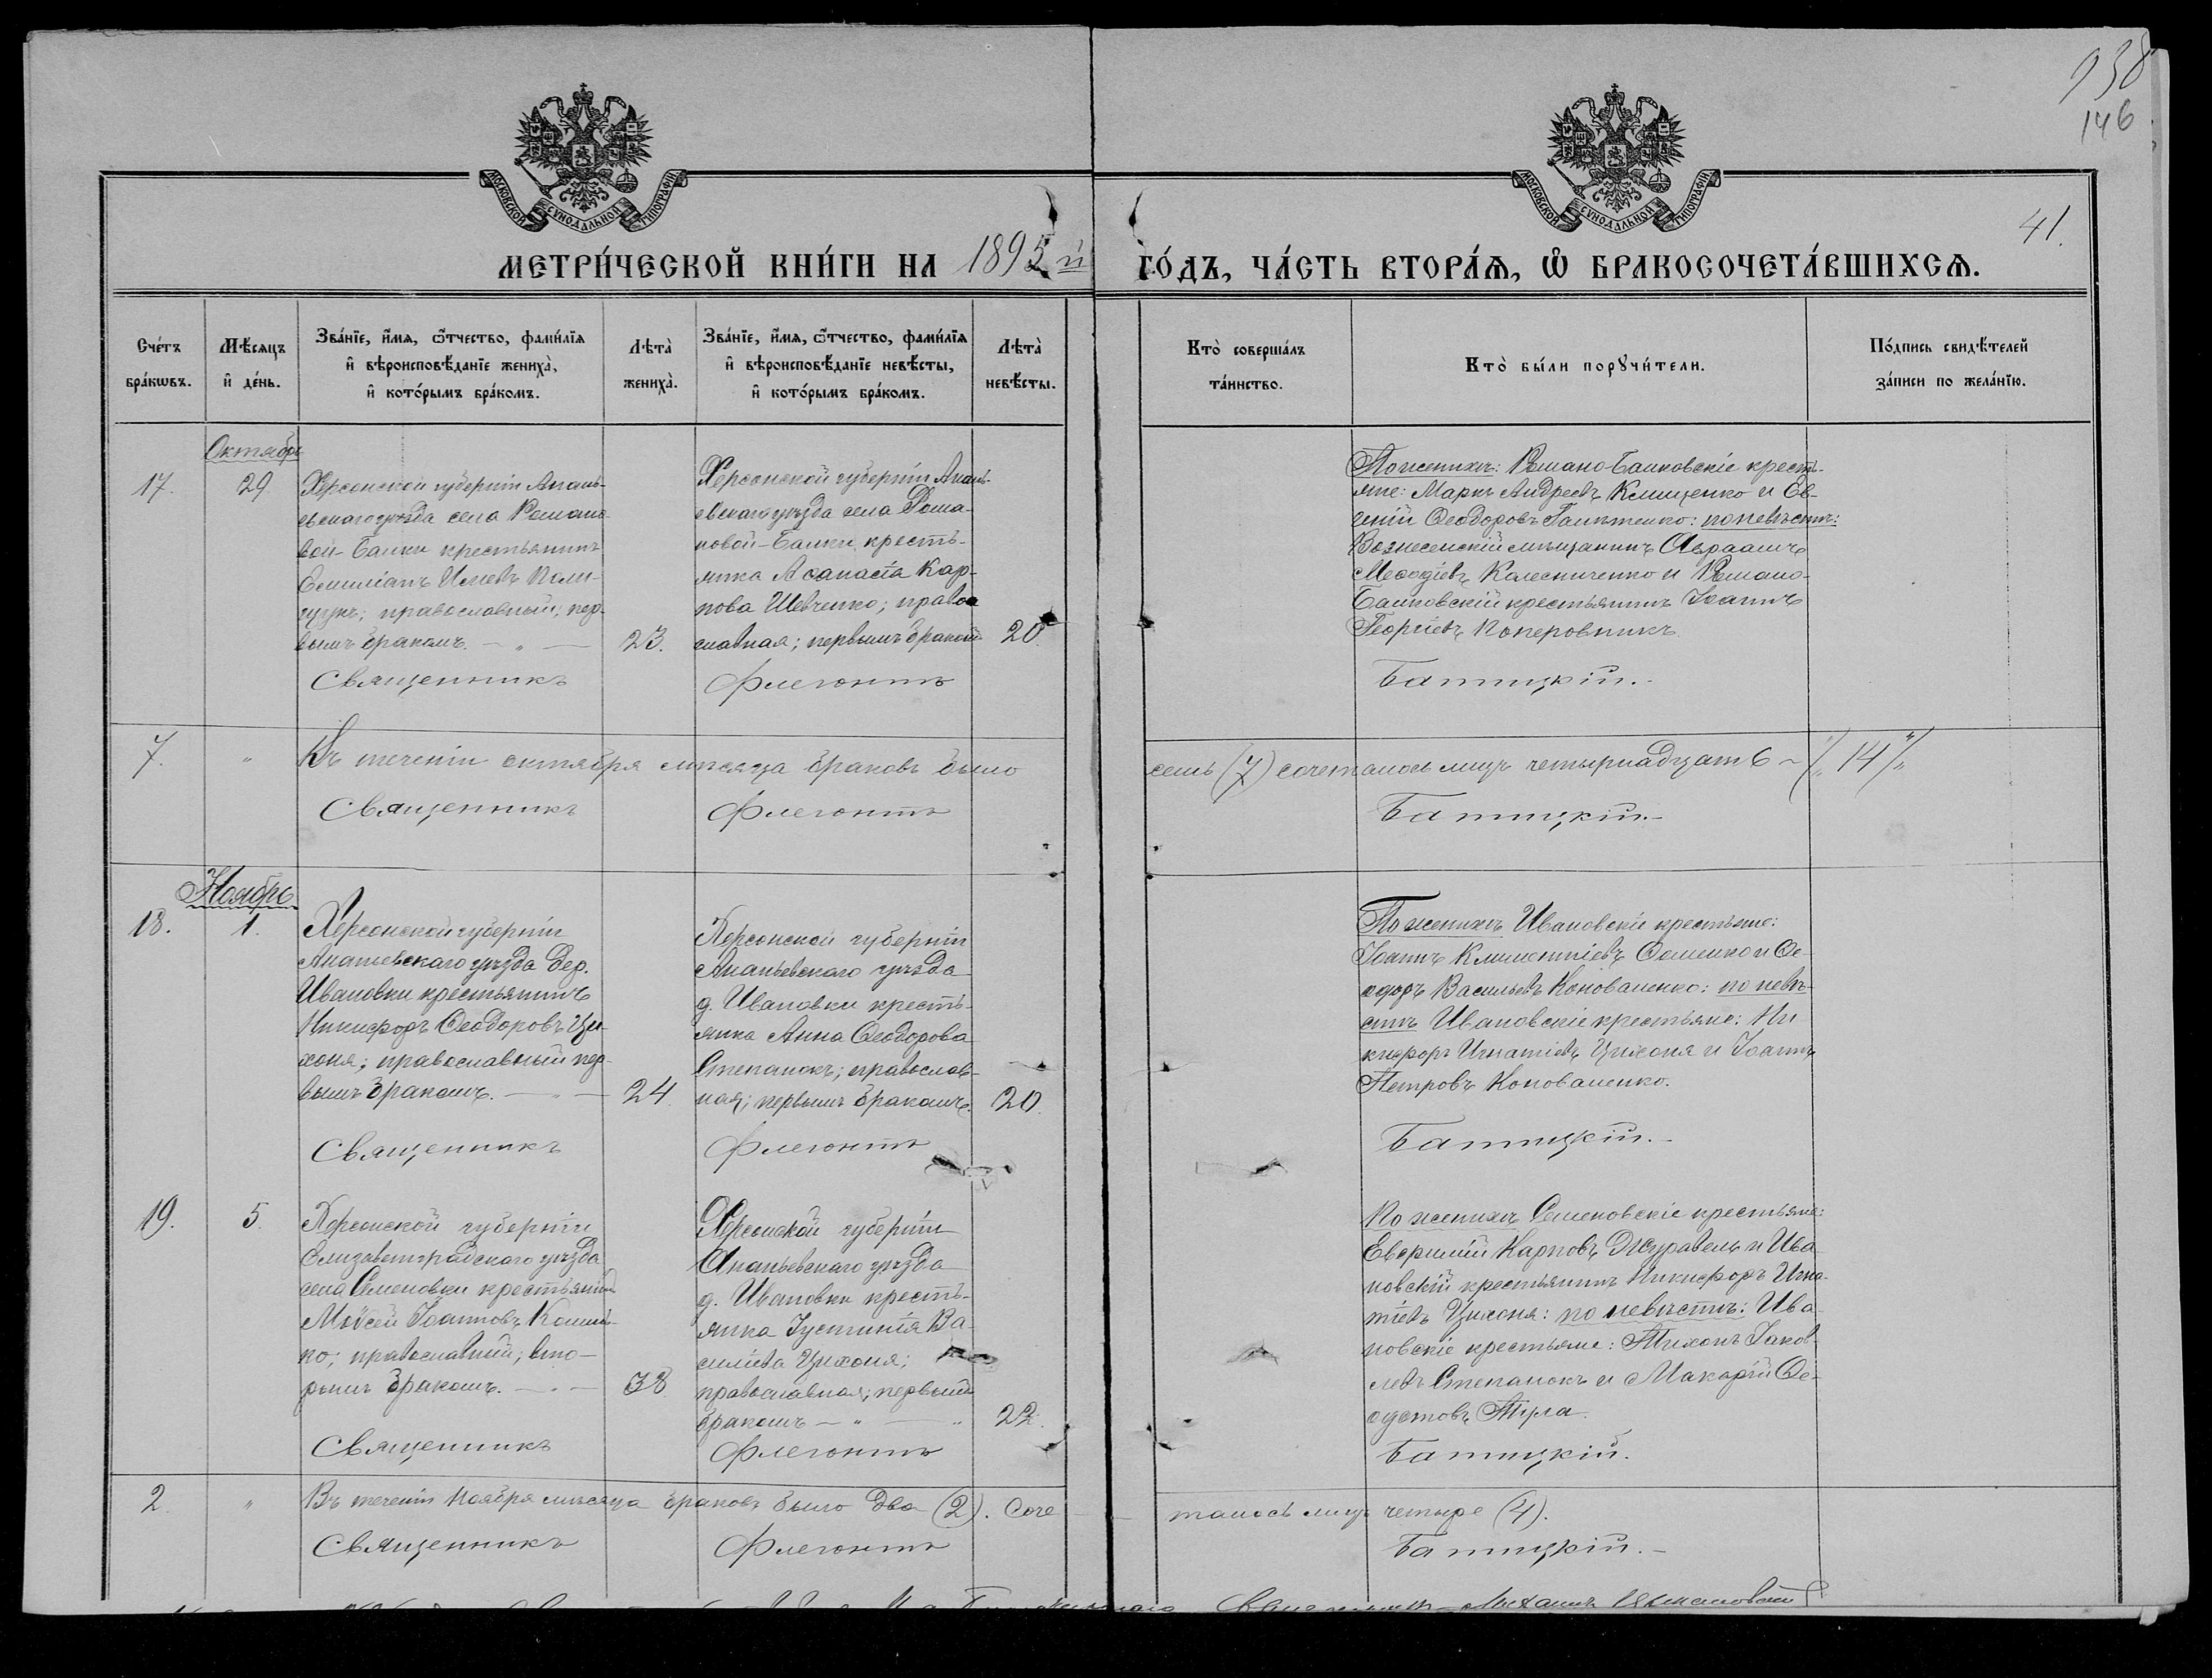 938
146
41.
МОСКОВСКОЙ СѴНОДАЛЬНОЙ ТИПОГРАФІИ
МОСКОВСКОЙ СѴНОДАЛЬНОЙ ТИПОГРАФІИ
МЕТРИ́ЧЕСКОЙ КНИ́ГИ НА 1895 й ГО́ДЪ, ЧА́СТЬ ВТОРА́Ѧ, Ѽ БРАКОСОЧЕТА́ВШИХСѦ.
Сче́тъ
бра́кѡвъ.
Мѣ́сяцъ
и҆ де́нь.
Зва́нїе, и҆́мя, ѻ҆́тчество, фами́лїя
и҆ вѣроисповѣ́данїе жениха̀,
и҆ кото́рымъ бра́комъ.
Лѣта̀
жениха̀.
Зва́нїе, и҆́мя, ѻ҆́тчество, фами́лїя
и҆ вѣроисповѣ́данїе невѣ́сты,
и҆ кото́рымъ бра́комъ.
Лѣта̀
невѣ́сты.
Кто̀ соверша́лъ
та́инство.
Кто̀ бы́ли порꙋчи́тели.
По́дпись свидѣ́телей
за́писи по жела́нїю.
Октябрь
17.
29.
Херсонской губерніи Анань-
евскаго уѣзда села Романо-
вой-Балки крестьянинъ
Емиліанъ Иліевъ Поли-
щукъ; православный; пер-
вымъ бракомъ. — „ —
23.
Херсонской губерніи Анань-
евскаго уѣзда села Рома-
новой-Балки, кресть-
янка Аѳанасія Кар-
пова Шевченко; право
славная; первымъ бракомъ
20.
По женихѣ: Романо-Балковскіе кресть-
яне: Маркъ Андреевъ Клищенко и Ев-
геній Ѳеодоровъ : по невѣстѣ:
Вознесенскій мѣщанинъ Авраамъ
Меѳодіевъ Колесниченко и Романо-
Балковскій крестьянинъ Іоаннъ
Георгіевъ Коперовникъ.
Священникъ Флегонтъ Батицкій.-
7.
„
Въ теченіи октября мѣсяца браковъ было семь (7) сочеталось лицъ четырнадцать ~ /„ 14 „/
Священникъ Флегонтъ Батицкій.-
Ноябрь
18.
1.
Херсонской губерніи
Ананьевскаго уѣзда дер.
Ивановки крестьянинъ
Никифоръ Ѳеодоровъ Ци-
хоня; православный пер-
вымъ бракомъ. — „ —
24
Херсонской губерніи
Ананьевскаго уѣзда
д. Ивановки кресть-
янка Анна Ѳеодорова
Степанокъ; православ-
ная; первымъ бракомъ.
20.
По женихѣ Ивановскіе крестьяне:
Іоаннъ Климентіевъ Фоменко и Ѳе-
одоръ Васильевъ Коноваленко: по невѣ-
стѣ Ивановскіе крестьяне: Ни
кифоръ Игнатіевъ Цихоня и Іоаннъ
Петровъ Коноваленко.
Священникъ Флегонтъ Батицкій.-
19.
5.
Херсонской губерніи
Елизаветградскаго уѣзда
села Семеновки крестьянинъ
Моѵсей Іоанновъ
ко; православный; вто-
рымъ бракомъ. — „ —
38
Херсонской губерніи
Ананьевскаго уѣзда
д. Ивановки кресть-
янка Іустинія Ва-
силіева Цихоня;
православная; первымъ
бракомъ — „ — „
22.
По женихѣ Семеновскіе крестьяне:
Евфимій Карповъ Журавель и Ива-
новскій крестьянинъ Никифоръ Игна-
тіевъ Цихоня: по невѣстѣ: Ива-
новскіе крестьяне: Тихонъ Іаков-
левъ Степанокъ и Макарій Ѳе-
одотовъ Тула.
Священникъ Флегонтъ Батицкій.
2.
„
Въ теченіи Ноября мѣсяца браковъ было два (2). Соче талось лицъ четыре (4).
Священникъ Флегонтъ Батицкій.-
Священникъ Михаилъ